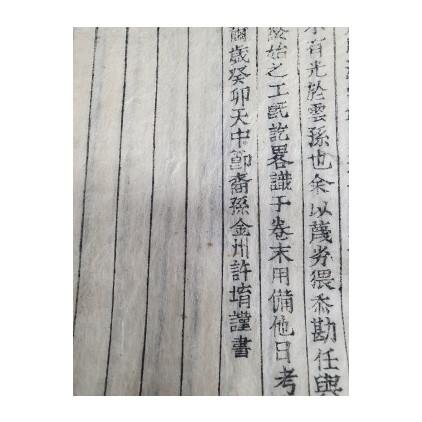 有光於雲孫也余以蔑劣猥忝勘任與
始之工旣訖畧識于卷末用備他日考
爾歲癸卯天中節裔孫金州許堉謹書